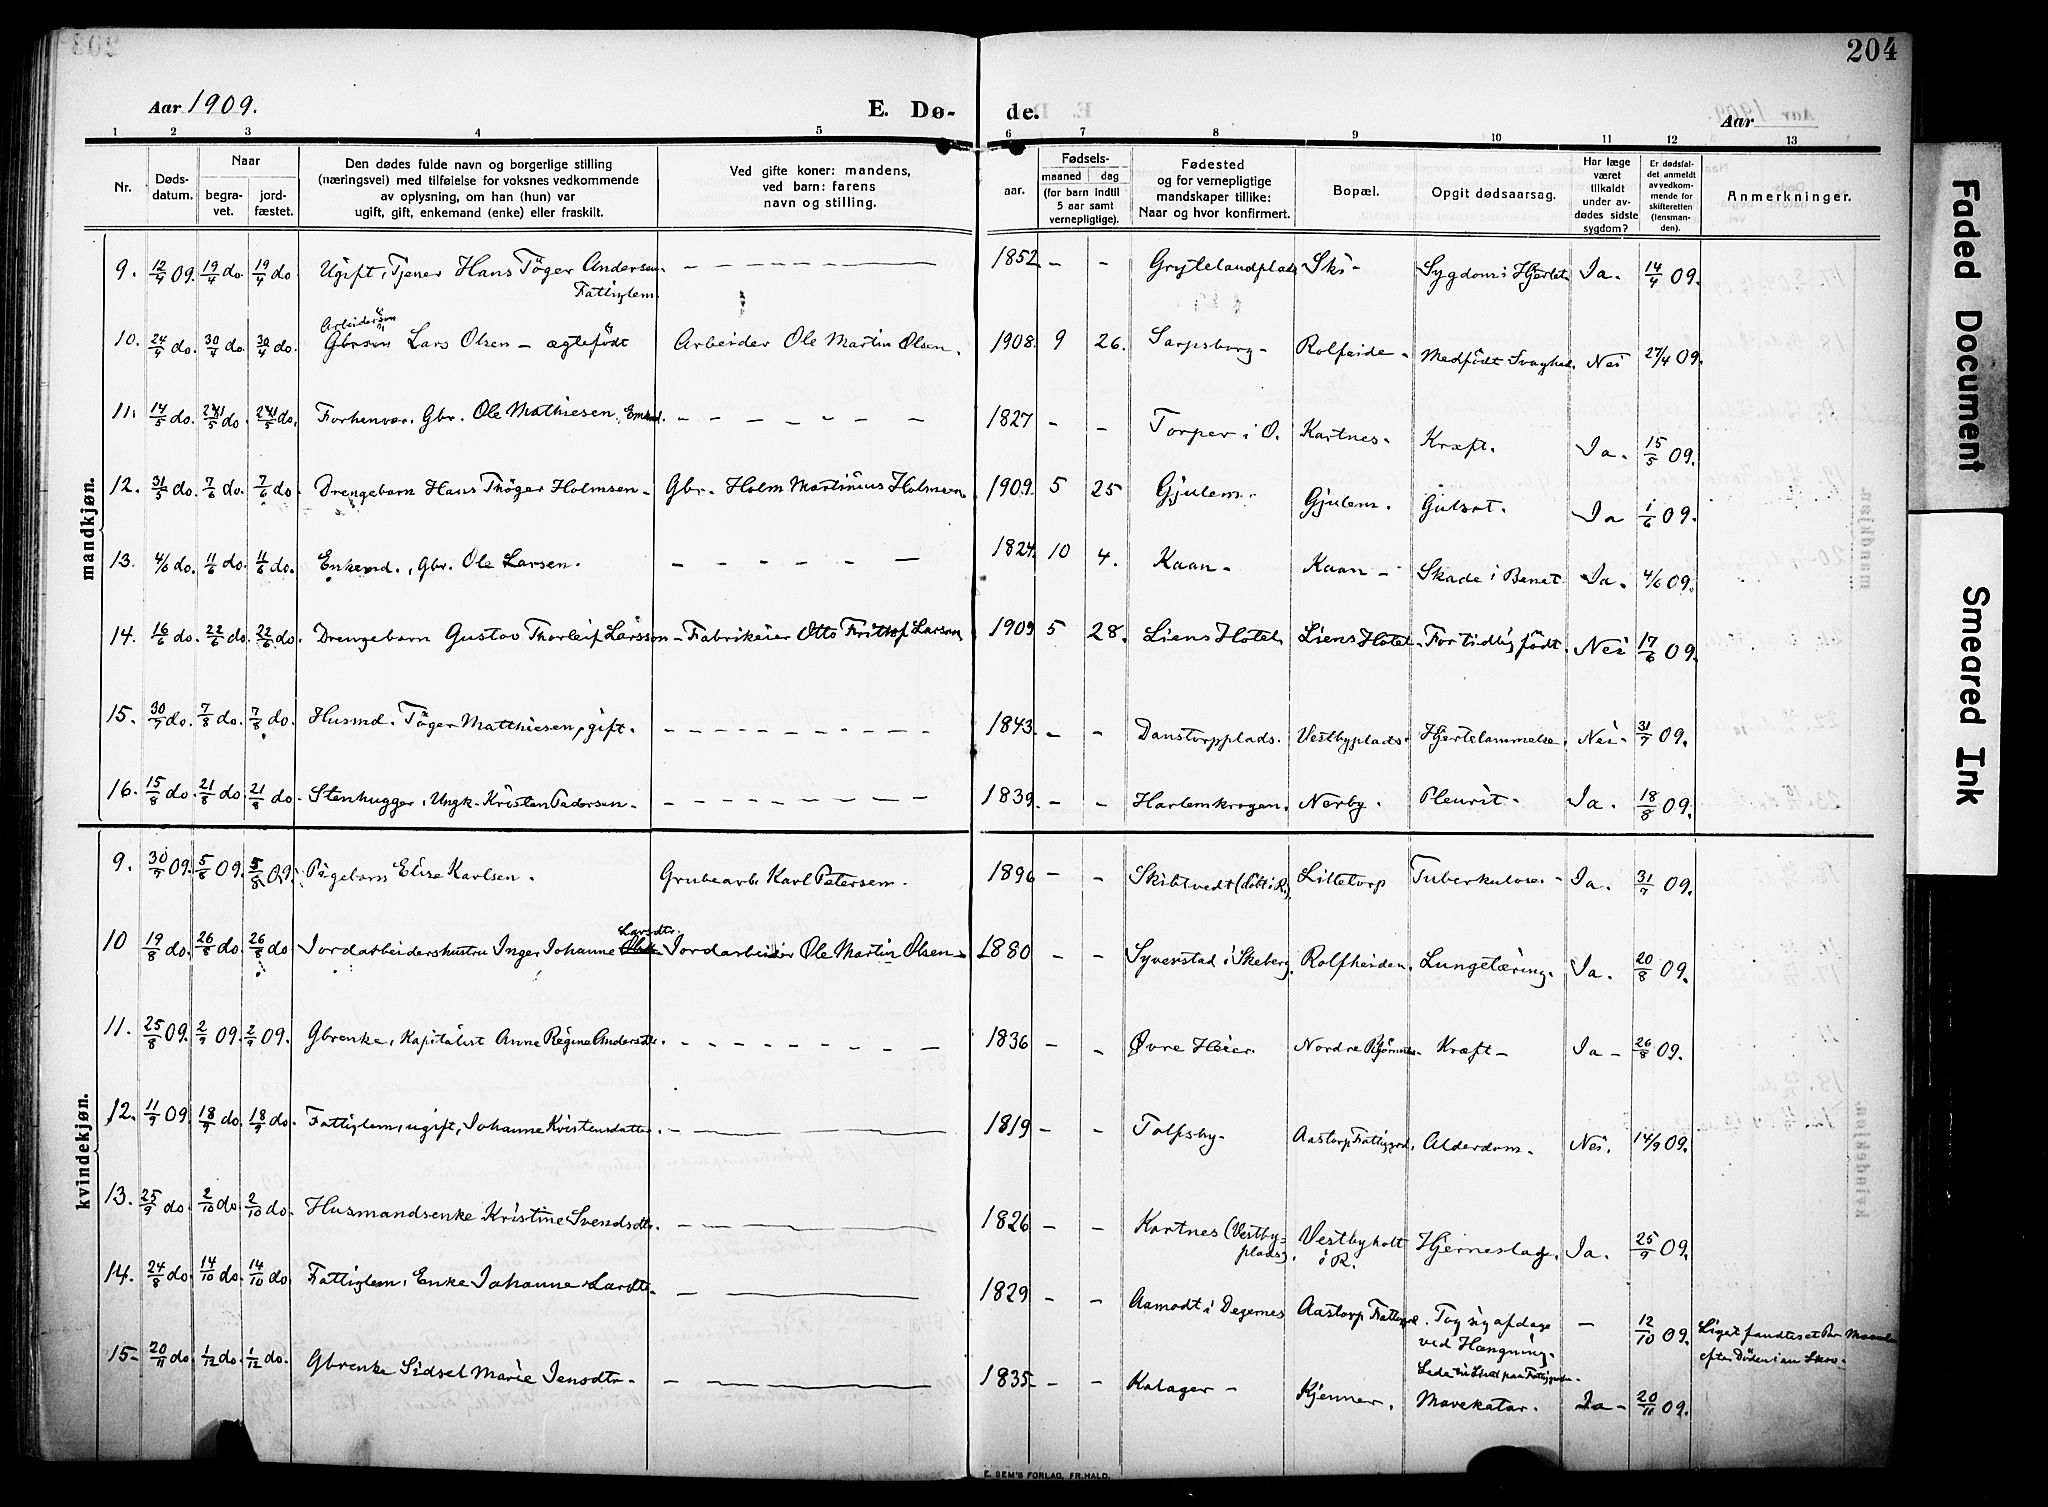 204
Aar 1909.
E. Dø-
de.
Aar
1 2 3 4 5 6 7 8 9 10 11 12 13
Nr.
Døds-
datum.
Naar
begra-
vet.
jord-
fæstet.
Den dødes fulde navn og borgerlige stilling
(næringsvei) med tilføielse for voksnes vedkommende
av oplysning, om han (hun) var
ugift, gift, enkemand (enke) eller fraskilt.
Ved gifte koner: mandens,
ved barn: farens
navn og stilling.
Fødsels-
aar.
maaned dag
(for barn indtil
5 aar samt
vernepligtige).
Fødested
og for vernepligtige
mandskaper tillike:
Naar og hvor konfirmert.
Bopæl.
Opgit dødsaarsag.
Har læge
været
tilkaldt
under av-
dødes sidste
sygdom?
Er dødsfal-
det anmeldt
av vedkom-
mende for
skifteretten
(lensman-
den).
Anmerkninger.
mandkjøn.
9. 12/4 09. 19/4 do. 19/4 do. Ugift, Tjener Hans Töger Andersen - 1852 - - Grytelandplads Ski - Sygdom i Hjertet Ja. 14/4 09.
Fattiglem.
Arbeidersøn
10. 24/4 do. 30/4 do. 30/4 do. Gbrsøn Lars Olsen - ægtefödt Arbeider Ole Martin Olsen. 1908. 9 26. Sarpsborg - Rolfseide - Medfödt Svaghed. Nei 27/4 09.
11. 14/5 do. do. do. Forhenvær. Gbr. Ole Mathiesen, Enkmd. - 1827 - - Torper i O. Kartnes - Kræft. Ja. 15/5 09.
12. 31/5 do. 7/6 do. 7/6 do. Drengebarn Hans Thöger Holmsen - Gbr. Holm Martinius Holmsen 1909. 5 25 Gjulem. Gjulem. Gulsot. Ja 1/6 09.
13. 4/6 do. 11/6 do. 11/6 do. Enkemd., Gbr. Ole Larsen. - 1824. 10 4. Kaan - Kaan - Skade i Benet Ja. 4/6 09.
14. 16/6 do. 22/6 do. 22/6 do. Drengebarn Gustav Thorleif Larsson - Fabrikeier Otto Frittof Larsen 1909 5 28. Liens Hotel Liens Hotel - For tidlig födt. Nei 17/6 09.
15. 30/7 do. 7/8 do. 7/8 do. Husmd. Töger Matthiesen, gift. - 1843. - - Danstorpplads. Vestbyplads. Hjertelammelse. Nei - 31/7 09.
16. 15/8 do. 21/8 do. 21/8 do. Stenhugger, Ungk. Kristen Pedersen - 1839. - - Harlemkrogen. Nerby. Pleurit - Ja. 18/8 09.
kvindekjøn.
9. 30/7 09. 5/8 09. 5/8 09. Pigebarn Elise Karlsen. Grubearb. Karl Petersen. 1896 - - Skibtvedt (döbt i R.), Littetorp Tuberkulose - Ja. 31/7 09.
Larsdtr.
10 19/8 do. 26/8 do. 26/8 do Jordarbeidershustru Inger Johanne Jordarbeider Ole Martin Olsen - 1880 - - Syverstad i Skeberg. Rolfheiden. Lungetæring. Ja. 20/8 09.
11. 25/8 09. 2/9 09. 2/9 09. Gbrenke, Kapitalist Anne Regine Andersdtr. - 1836 - - Øvre Heier. Nordre - Kræft - Ja - 26/8 09.
12. 11/9 09. 18/9 do 18/9 do. Fattiglem, ugift, Johanne Kristensdatter. - 1819 - - Tolfsby - Aastorp Fattiggrd. Alderdom - Nei. 14/9 09.
13. 25/9 do. 2/10 do. 2/10 do. Husmandsenke Kristine Svendsdtr. - 1826 - - Kartnes (Vestby-
plads). Vestbyholt
i R. Hjerneslag. Ja. 25/9 09.
14. 24/8 do. 14/10 do. 14/10 do. Fattiglem, Enke Johanne Larsdtr. - 1829 - - Aamodt i Degernes Aastorp Fattiggrd. Tog sig afdage
ved Hængning. - 12/10 09.
15 - 20/11 do. 1/12 do. 1/12 do. Gbrenke Sidsel Marie Jensdtr - - 1835 - - - Kalager - Kjenner. Mavekatar. Ja - 20/11 09.
E. SEM'S FORLAG, FR.HALD.
Faded Document
Smeared Ink